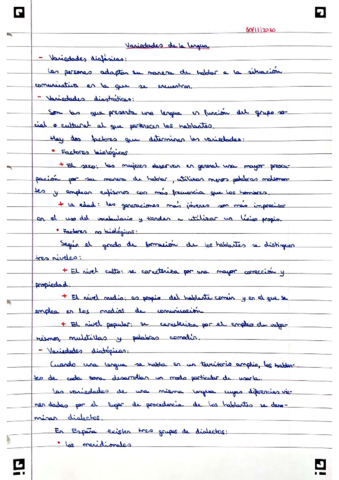 30/11/2020
Variedades de la lengua
- Variedades diafásicas:
Las personas adaptan su manera de hablar a la situación
comunicativa en la que se encuentran.
- Variedades diastráticas:
Son las que presenta una lengua en función del grupo so-
cial o cultural al que pertenecen los hablantes.
Hay dos factores que determinan las variedades:
* Factores biológicos
+ El sexo: las mujeres observan en general una mayor preocu-
pación por su manera de hablar, utilizan menos palabras malsonan-
tes y emplean eufismos con más frecuencia que los hombres.
+ La edad: las generaciones más jóvenes son más imprecisas
en el uso del vocabulario y tienden a utilizar un léxico propio.
* Factores no biológicos:
Según el grado de formación de los hablantes se distinguen
tres niveles:
+ El nivel culto: se caracteriza por una mayor corrección y
propiedad.
+ El nivel medio: es propio del hablante común y en el que se
emplea en los medios de comunicación
+ El nivel popular: se caracteriza por el empleo de vulga-
rismos, muletillas y palabras comodín.
- Variedades diatópicas:
Cuando una lengua se habla en un territorio amplio, los hablan-
tes de cada zona desarrollan un modo particular de usarla.
Las variedades de una misma lengua cuyas diferencias vie-
nen dadas por el lugar de procedencia de los hablantes se deno-
minan dialectos.
En España existen tres grupos de dialectos:
* Los meridionales